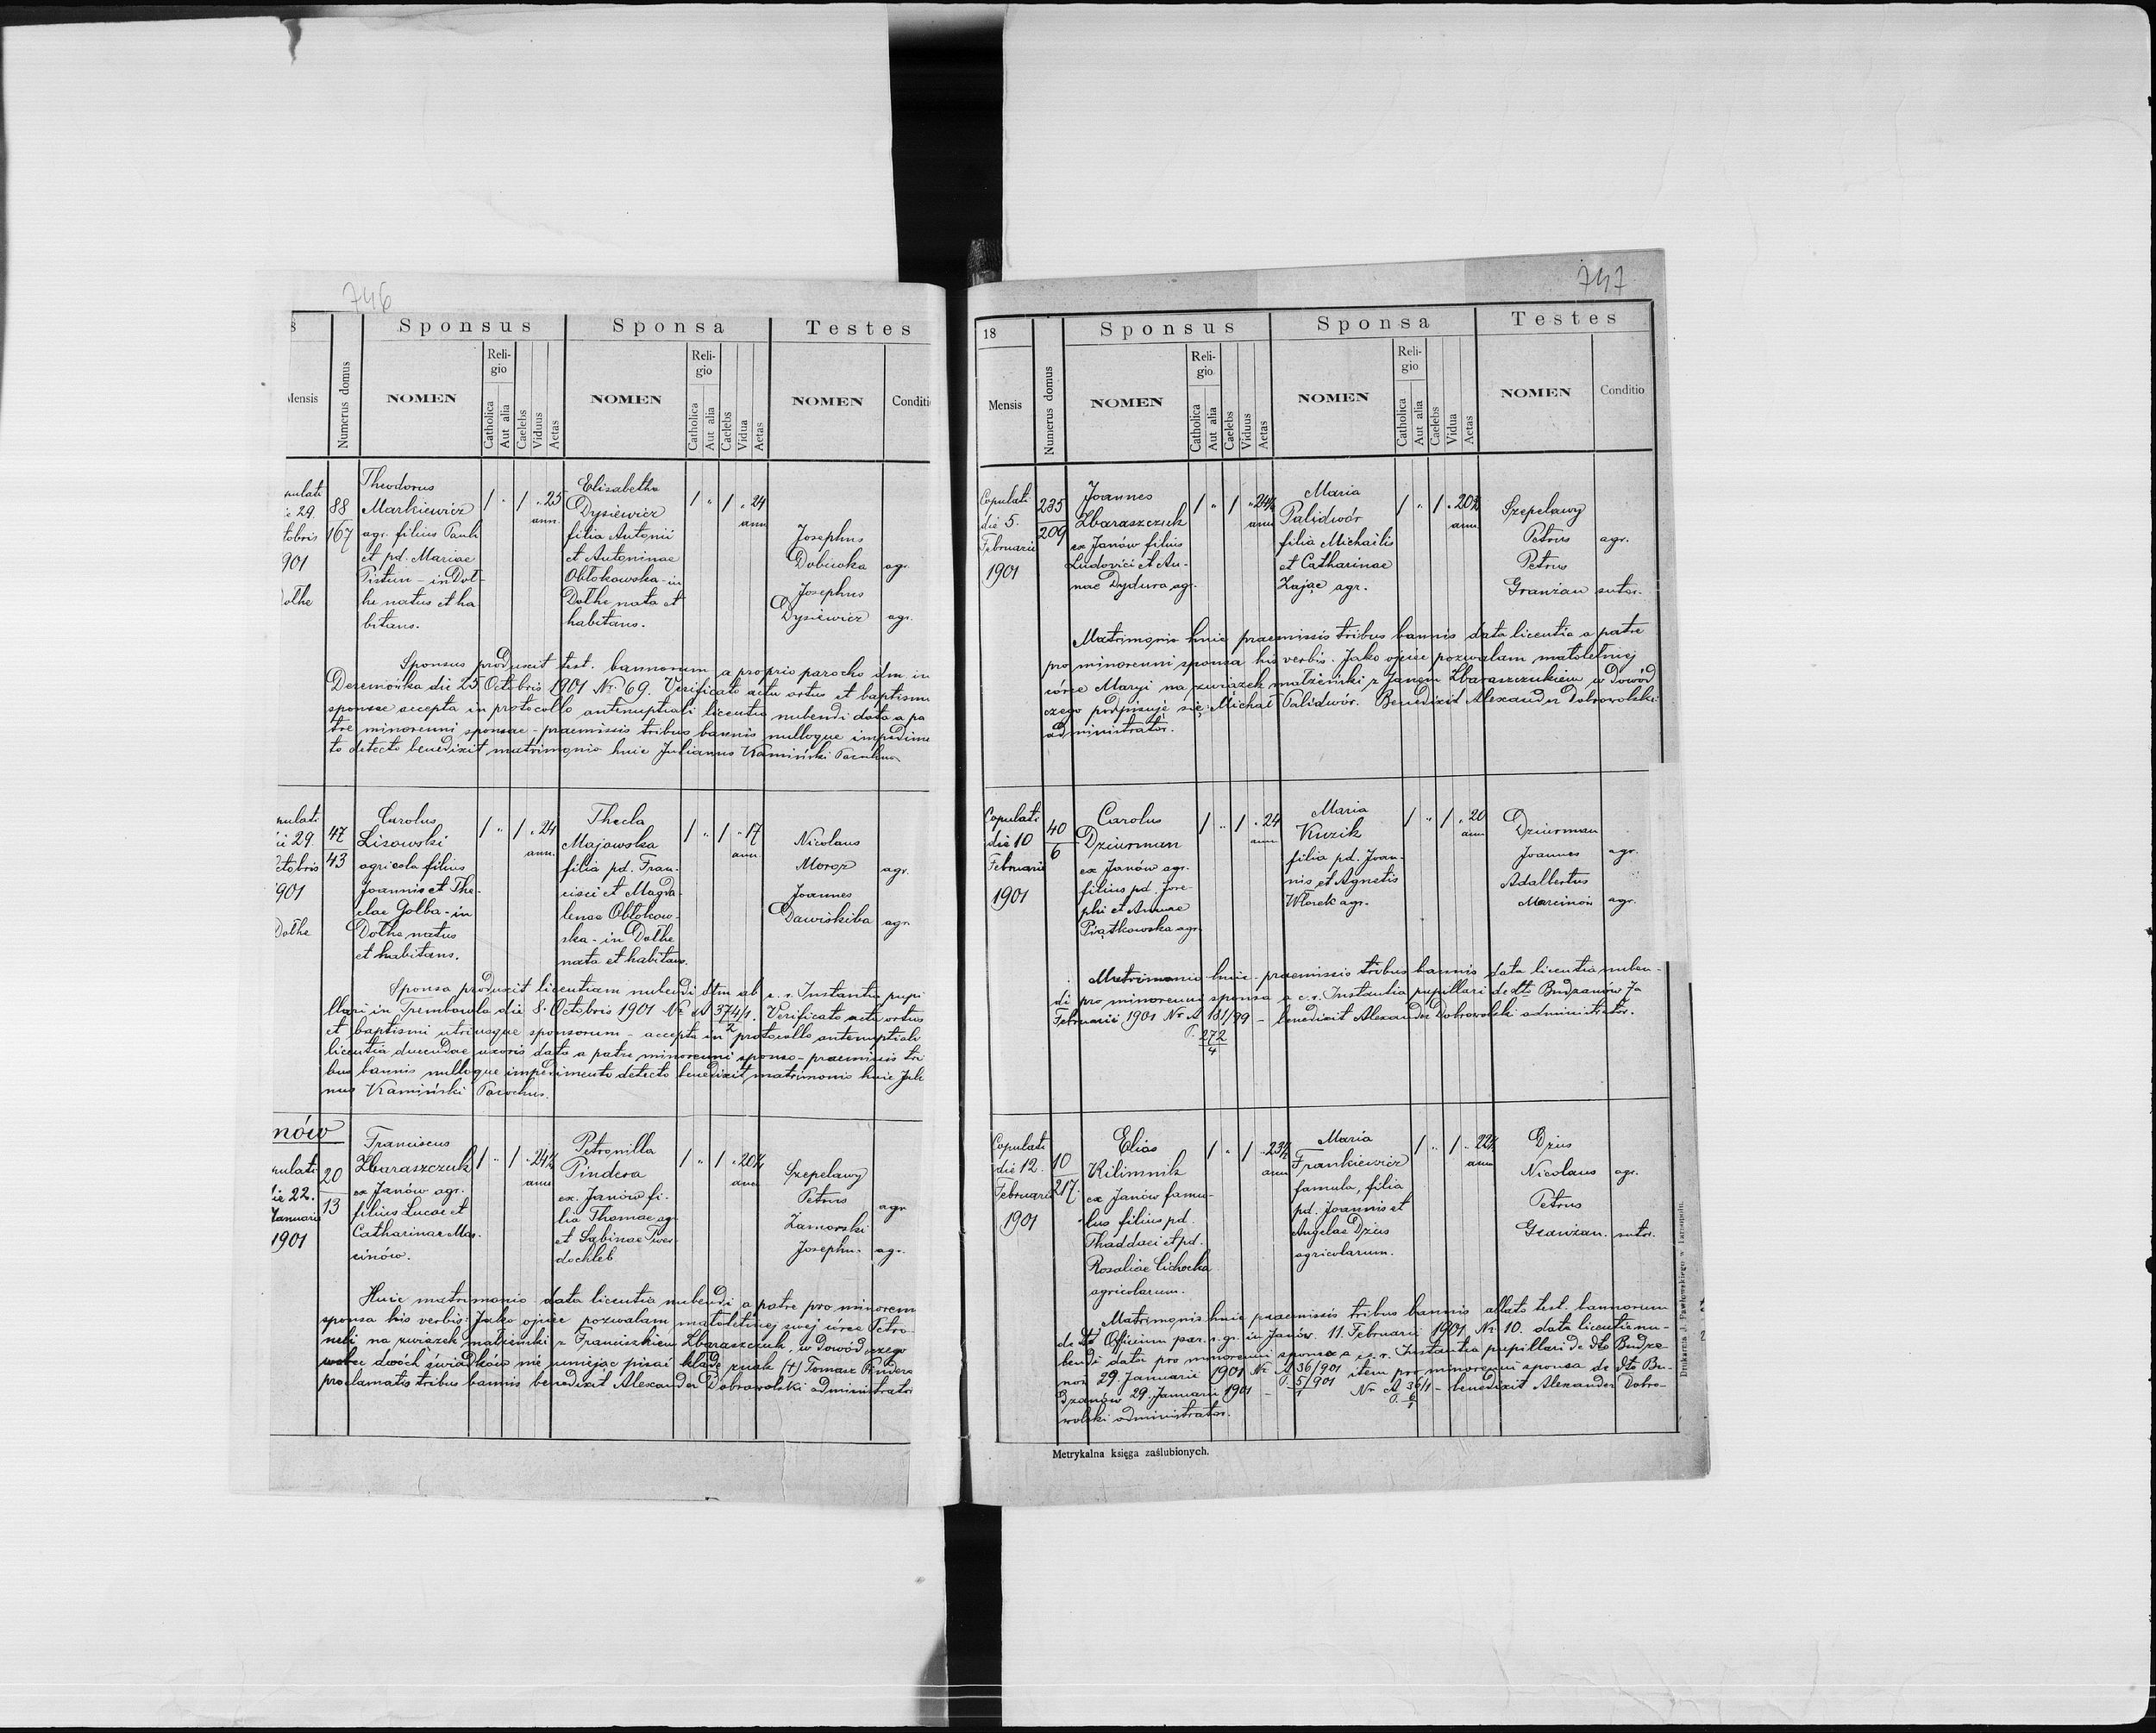 746
Sponsus Sponsa Testes
Mensis
Numerus domus
NOMEN
Religio
Catholica
Aut alia
Caelebs
Viduus
Aetas
NOMEN
Religio
Catholica
Aut alia
Caelebs
Vidua
Aetas
NOMEN
Conditi
29.
tobris
901
Dolhe
88
167
Theodorus
Markiewicz
agr. filius Pauli
et pd. Mariae
Pistun - in Dol-
he natus et ha
bitans.
1 " 1 " 25
ann.
Elisabetha
Dysiewicz
filia Antonii
et Antoninae
Obłokowska - in
Dolhe nata et
habitans.
1 " 1 " 24
ann
Josephus
Dobucka agr.
Josephus
Dysiewicz agr.
Sponsus produxit test. bannorum a proprio parocho dtm in
Deremówka die 25 Octobris 1901 Nr. 69. Verificato actu ortus et baptismi
sponsae accepta in protocollo antenuptiali licentia nubendi data a pa
tre minorenni sponsae - praemissis tribus bannis nulloque impedime
to detecto benedixit matrimonio huic Julianus Kamiński Parochus
29
ctobris
901
Dolhe
47
43
Carolus
Lisowski
agricola filius
Joannis et The-
clae Golba - in
Dolhe natus
et habitans.
1 " 1 " 24
ann.
Thecla
Majowska
filia pd. Fran-
cisci et Magda-
lenae Obłokow-
ska - in Dolhe
nata et habitans.
1 " 1 " 17
ann
Nicolaus
Moroz agr.
Joannes
Dawiskiba agr
Sponsa produxit licentiam nubendi dtm ab c. r. Instantia pupi
llari in Trembowla die 8. Octobris 1901 Nr A 374/1. Verificato actu ortus
2
et baptismi utriusque sponsorum - accepta in protocollo antenuptiali
licentia ducendae uxoris data a patre minorenni sponso - praemissis tri
bus bannis nulloque impedimento detecto benedixit matrimonio huic Juli
nus Kamiński Parochus.
nów
22.
Januarii
1901
20
13
Franciscus
Zbaraszczuk
ex Janów agr.
filius Lucae et
Catharinae Mar-
cinów.
1 " 1 " 24
ann
Petronilla
Pindera
ex. Janów fi-
lia Thomae agr
et Sabinae Twer
dochleb
1 " 1 " 20
ann
Szepelawy
Petrus agr
Zamorski
Josephus agr.
Huic matrimonio data licentia nubendi a patre pro minorenni
sponsa his verbis: Jako ojciec pozwalam małoletniej swej córce Petro
neli na związek małżeński z Franciszkiem Zbaraszczuk, w dowód czego
wobec dwóch świadków nie umiejąc pisać kładę znak (+) Tomasz Pindera
proclamatis tribus bannis benedixit Alexander Dobrowolski administrator
747
18
Sponsus Sponsa Testes
Mensis
Numerus domus
NOMEN
Religio
Catholica
Aut alia
Caelebs
Viduus
Aetas
NOMEN
Religio
Catholica
Aut alia
Caelebs
Vidua
Aetas
NOMEN
Conditio
Copulati
die 5.
Februarii
1901
235
209
Joannes
Zbaraszczuk
ex Janów filius
Ludovici et An-
nae Dydura agr.
1 " 1 " 24
ann
Maria
Palidwór
filia Michaelis
et Catharinae
Zając agr.
1 " 1 " 20
ann
Szepelawy
Petrus agr.
Petrus
Granżan sutor.
Matrimonio huic praemissis tribus bannis data licentia a patre
pro minorenni sponsa his verbis: Jako ojciec pozwalam małoletniej
córce Maryi na związek małżeński z Janem Zbaraszczukiem w dowód
czego podpisuję się: Michał Palidwór. Benedixit Alexander Dobrowolski
administrator.
Copulati
die 10
Februarii
1901
40
6
Carolus
Dziurman
ex Janów agr.
filius pd. Jose-
phi et Annae
Piątkowska agr.
1 " 1 " 24
ann
Maria
Kuzik
filia pd. Joan-
nis et Agnetis
Włorek agr.
1 " 1 " 20
ann
Dziurman
Joannes agr.
Adalbertus
Marcinów agr.
Matrimonio huic - praemissis tribus bannis data licentia nuben-
di pro minorenni sponsa a c. r. Instantia pupillari de dto Budzanów 7a
Februarii 1901 Nr A 181/99 - benedixit Alexander Dobrowolski administrator.
P. 272
4
Copulati
die 12.
Februarii
1901
10
217
Elias
Kilimnik
ex Janów famu-
lus filius pd.
Thaddaei et pd.
Rosaliae Cichocka
agricolarum.
1 " 1 " 23
ann
Maria
Frankiewicz
famula, filia
pd. Joannis et
Angelae Dzius
agricolarum.
1 " 1 " 22
ann
Dzius
Nicolaus agr.
Petrus
Granżan. sutor.
Matrimonio huic praemissis tribus bannis allato test. bannorum
de dto Officium par. r. gr. in Janów. 11. Februarii 1901 Nr 10. data licentia nu-
bendi dato pro minorenni sponso a c. r. Instantia pupillari de dto Budza-
nów 29. Januarii 1901 Nr A 36/901 item pro minorenni sponsa de dto Bu-
P. 5/901
1
dzanów 29. Januarii 1901 - Nr A 36/1 - benedixit Alexander Dobro-
P. 6
1
wolski administrator.
Metrykalna księga zaślubionych.
Drukarnia J. Pawłowskiego w Tarnopolu.